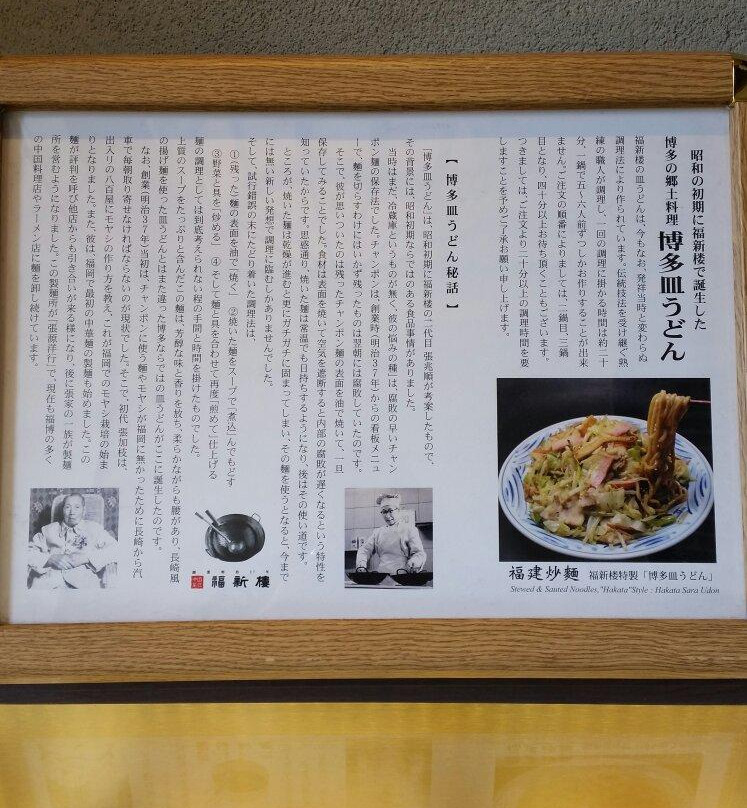 昭和の初期に福新楼で誕生した
博多の郷土料理 博多皿うどん
福新楼の皿うどんは、今もなお、発祥当時と変わらぬ
調理法により作られています。伝統技法を受け継ぐ熟
練の職人が調理し、一回の調理に掛かる時間は約二十
分、一鍋で五～六人前ずつしかお作りすることが出来
ません。ご注文の順番によりましては、二鍋目、三鍋
目となり、四十分以上お待ち頂くこともございます。
つきましては、ご注文より二十分以上の調理時間を要
しますことを予めご了承お願い申し上げます。
福建炒麺 福新楼特製「博多皿うどん」
Stewed & Sauted Noodles,"Hakata"Style : Hakata Sara Udon
【 博多皿うどん秘話 】
「博多皿うどん」は、昭和初期に福新楼の二代目 張兆順が考案したもので、
その背景には、昭和初期ならではのある食品事情がありました。
当時はまだ、冷蔵庫というものが無く、彼の悩みの種は、腐敗の早いチャン
ポン麺の保存法でした。チャンポンは、創業時(明治37年)からの看板メニュ
ーで、麺を切らすわけにはいかず残ったものは翌朝には腐敗していたのです。
そこで、彼が思いついたのは残ったチャンポン麺の表面を油で焼いて、一旦
保存してみることでした。食材は表面を焼いて空気を遮断すると内部の腐敗が遅くなるという特性を
知っていたからです。思惑通り、焼いた麺は常温でも日持ちするようになり、後はその使い道です。
ところが、焼いた麺は乾燥が進むと更にガチガチに固まってしまい、その麺を使うとなると、今まで
には無い新しい発想で調理に臨むしかありませんでした。
そして、試行錯誤の末にたどり着いた調理法は、
①(残った)麺の表面を油で「焼く」 ②焼いた麺をスープで「煮込」んでもどす
③野菜と具を「炒める」 ④そして麺と具を合わせて再度「煎めて」仕上げる
麺の調理としては到底考えられない程の手間と時間を掛けたものでした。
上質のスープをたっぷりと含んだこの麺は、芳醇な味と香りを放ち、柔らかながらも腰があり、「長崎風
の揚げ麺を使った皿うどん」とはまた違った博多ならではの皿うどんがここに誕生したのです。
なお、創業(明治37年)当初は、チャンポンに使う麺やモヤシが福岡に無かったために長崎から汽
車で毎朝取り寄せなければならないのが現状でした。そこで、初代 張加枝は、
出入りの八百屋にモヤシの作り方を教え、これが福岡でのモヤシ栽培の始ま
りとなりました。また、彼は、福岡で最初の中華麺の製麺も始めました。この
麺が評判を呼び他店からも引き合いが来る様になり、後に張家の一族が製麺
所を営むようになりました。この製麺所が「張源洋行」で、現在も福博の多く
の中国料理店やラーメン店に麺を卸し続けています。
福新楼